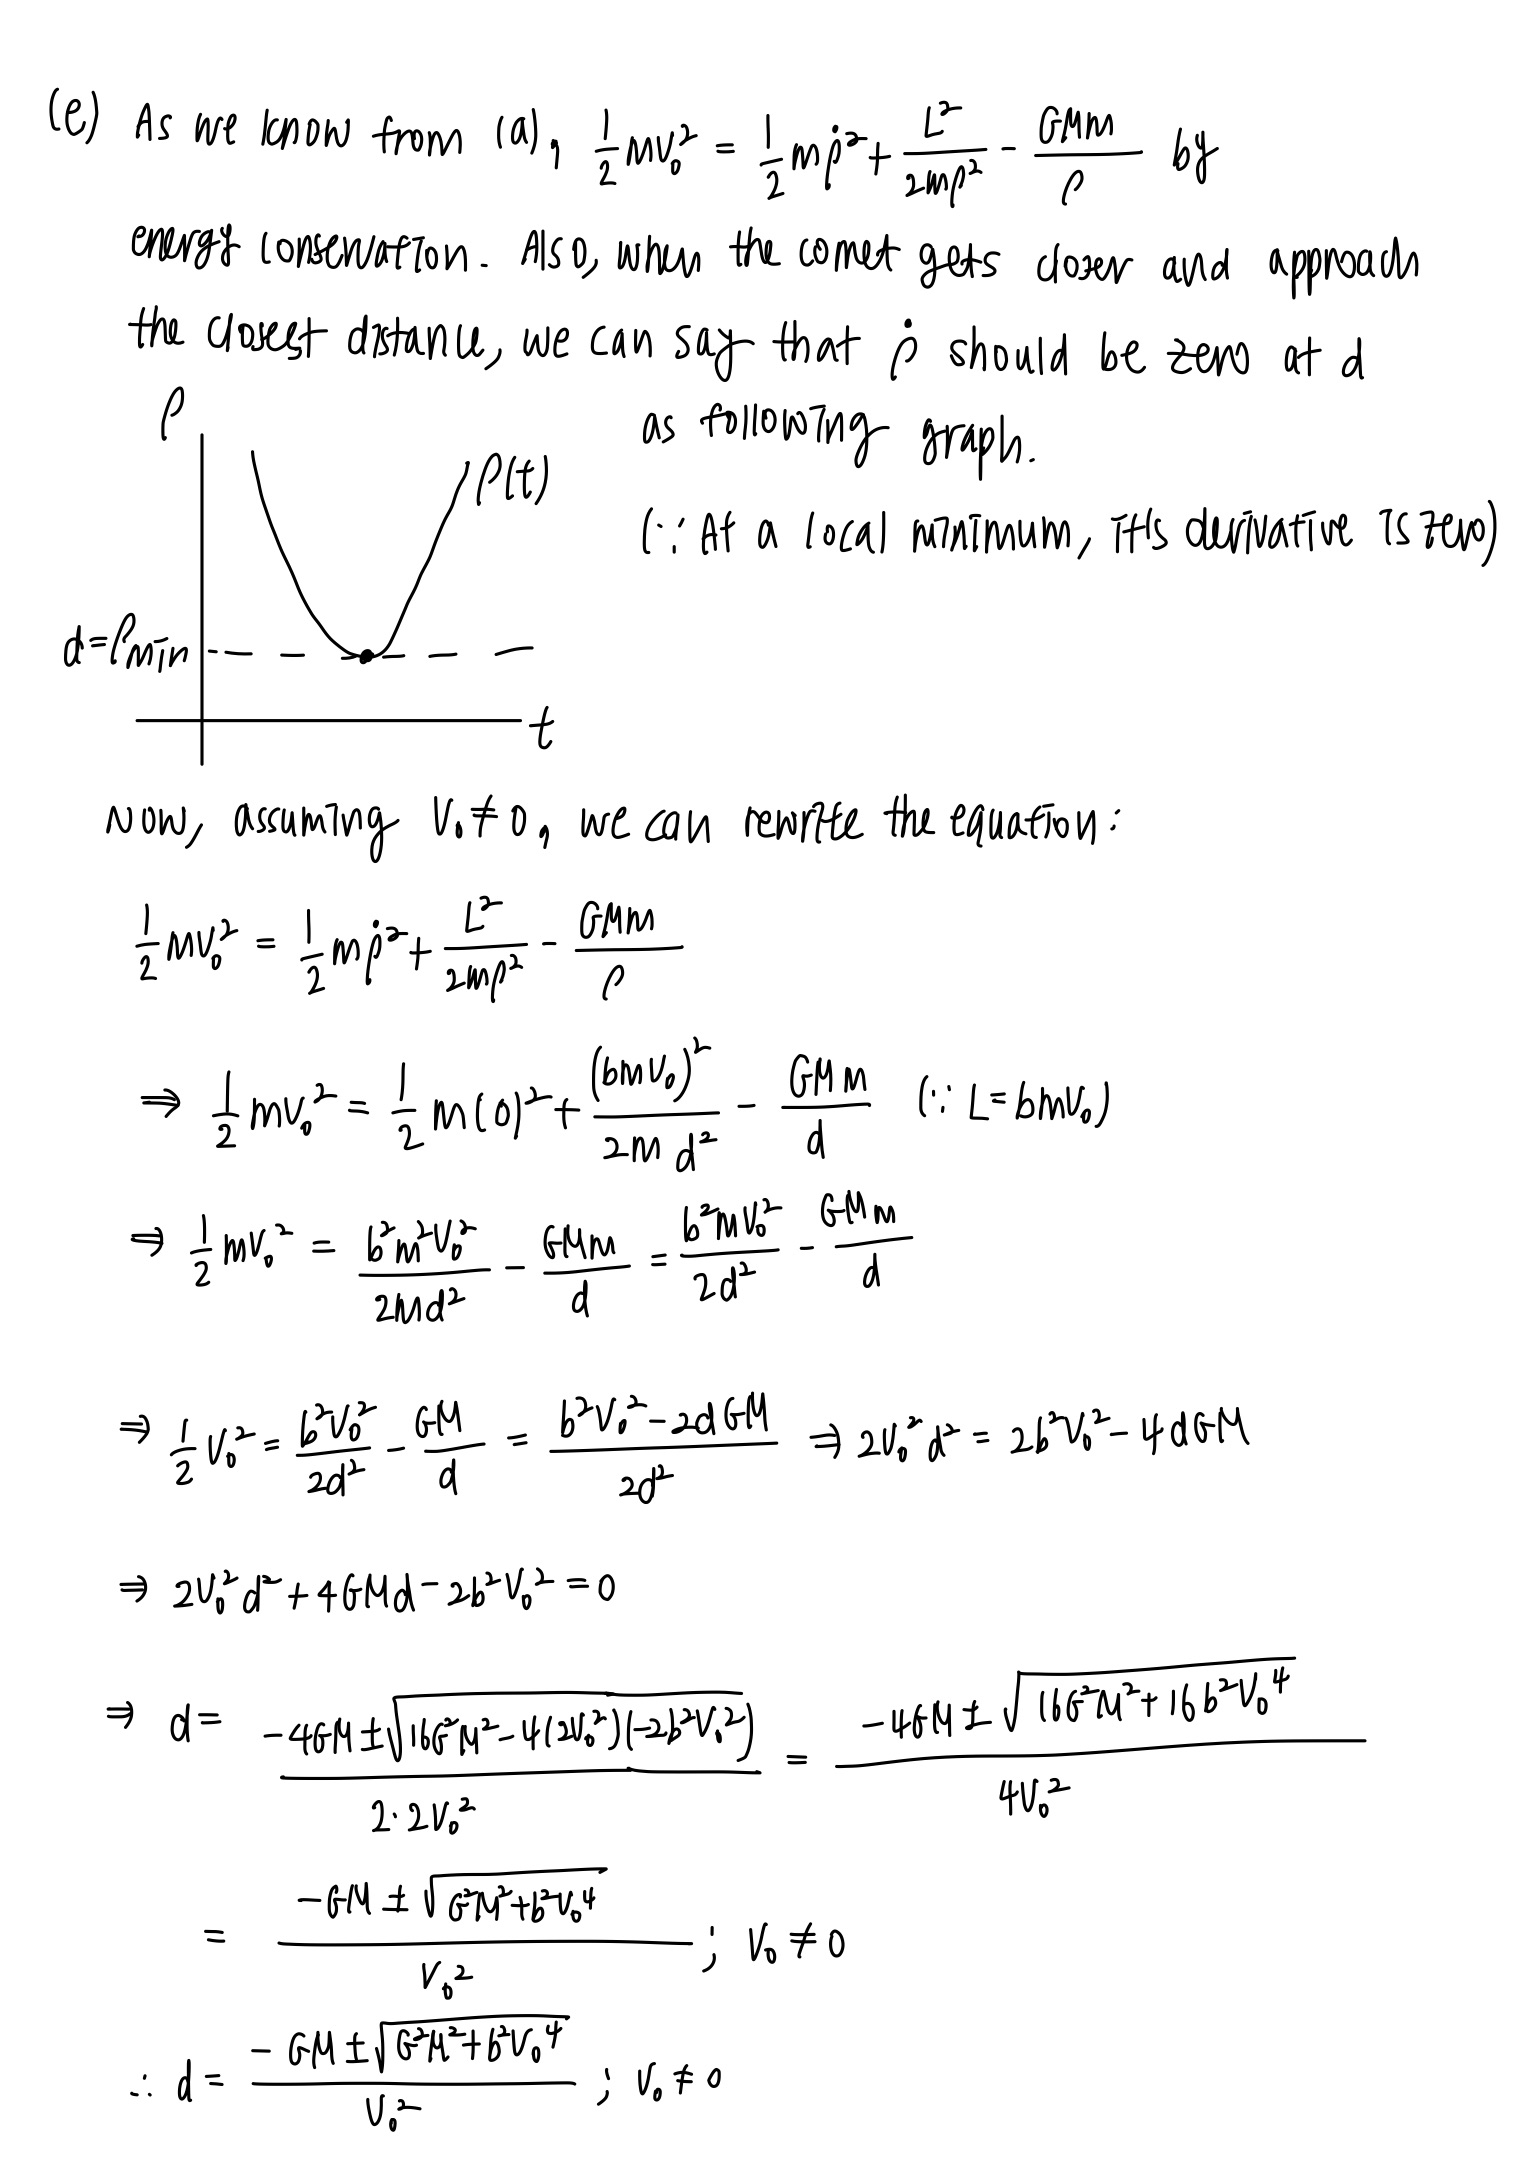 (e) As we know from (a), 1/2 mv₀² = 1/2 mρ̇² + L²/2mρ² - GMm/ρ by
energy conservation. Also, when the comet gets closer and approach
the closest distance, we can say that ρ̇ should be zero at d
as following graph.
(∵ At a local minimum, it's derivative is zero)
ρ
ρ(t)
d=ρmin
t
Now, assuming V₀ ≠ 0, we can rewrite the equation:
1/2 mv₀² = 1/2 mρ̇² + L²/2mρ² - GMm/ρ
⇒ 1/2 mv₀² = 1/2 m(0)² + (bmv₀)²/2m d² - GMm/d (∵ L = bmv₀)
⇒ 1/2 mv₀² = b²m²v₀²/2md² - GMm/d = b²mv₀²/2d² - GMm/d
⇒ 1/2 v₀² = b²v₀²/2d² - GM/d = (b²v₀² - 2dGM)/2d² ⇒ 2v₀²d² = 2b²v₀² - 4dGM
⇒ 2v₀²d² + 4GMd - 2b²v₀² = 0
⇒ d = (-4GM ± √(16G²M² - 4(2v₀²)(-2b²v₀²)))/2·2v₀² = (-4GM ± √(16G²M² + 16b²v₀⁴))/4v₀²
= (-GM ± √(G²M² + b²v₀⁴))/v₀² ; v₀ ≠ 0
∴ d = (-GM ± √(G²M² + b²v₀⁴))/v₀² ; v₀ ≠ 0